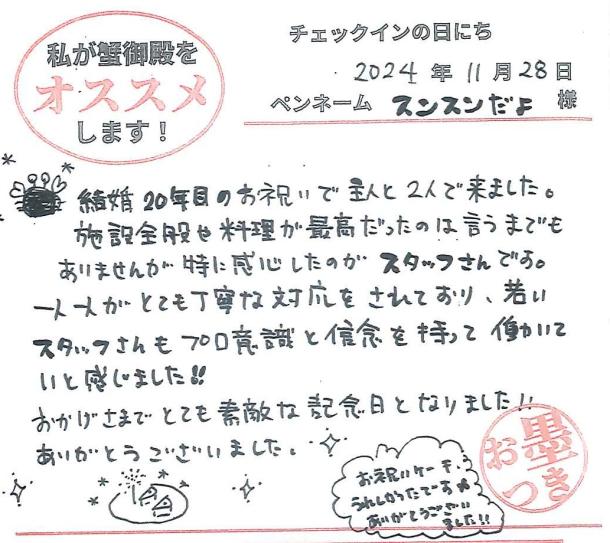 私が蟹御殿を
オススメ
します!
チェックインの日にち
2024 年 11 月 28 日
ペンネーム スンスンだよ 様
結婚20年目のお祝いで主人と2人で来ました。
施設全般や料理が最高だったのは言うまでも
ありませんが特に感心したのがスタッフさんです。
一人一人がとても丁寧な対応をされており、若い
スタッフさんもプロ意識と信念を持って働いて
いと感じました!!
おかげさまでとても素敵な記念日となりました!!
ありがとうございました。
お祝いケーキ、
うれしかったです
ありがとうござい
ました!!
お墨つき